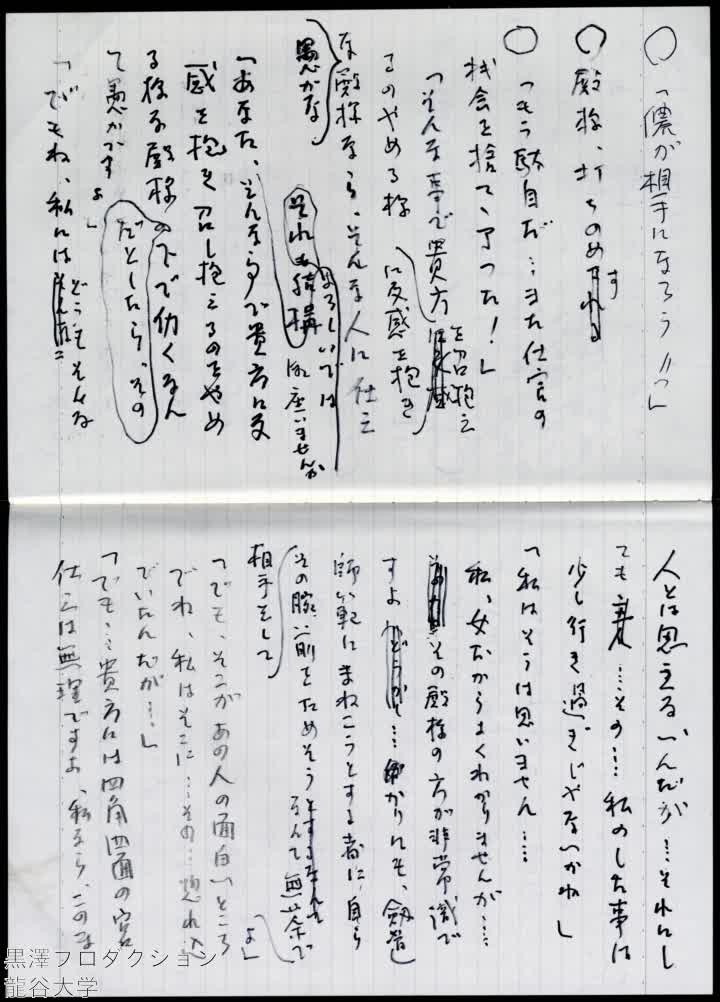 ○「儂が相手になろう〃っ」
○殿様、打ちのめす
○「もう駄目だ…また仕官の
機会を捨て、了った!」
「そんな事で貴方を召抱え
るのやめる様
に反感を抱き
な殿様なら、そんな人に仕え
愚かな
それも結構
よろしいでは
御座いませんか
「あなた、そんな事で貴方に反
感を抱き召し抱えるのをやめ
る様な殿様の下で仂くなん
だとしたら、その
て愚かですよ」
「でもね、私にはどうもそんな
人とは思えないんだが…それにし
ても…その…私のした事は
少し行き過ぎじやないかね」
「私はそうは思いません…
私、女だからよくわかりませんが…
その殿様の方が非常識で
すよ…かりにも、劔道
師範にまねこうとする者に、自ら
その腕前をためそうと
なんて無茶で
相手をして
「でも、そこがあの人の面白いところ
でね、私はそこに…その…惚れ込
でいたんだが…」
「でも…貴方には四角四面の宮
仕えは無理ですよ、私なら、このま
黒澤プロダクション
龍谷大学